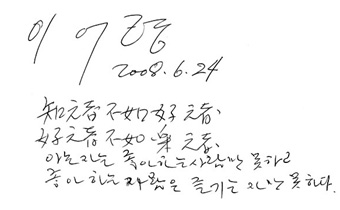 이어령
2008.6.24
知之者不如好之者,
好之者不如樂之者.
아는자는 좋아하는사람만 못하고
좋아하는 사람은 즐기는 자만 못하다.